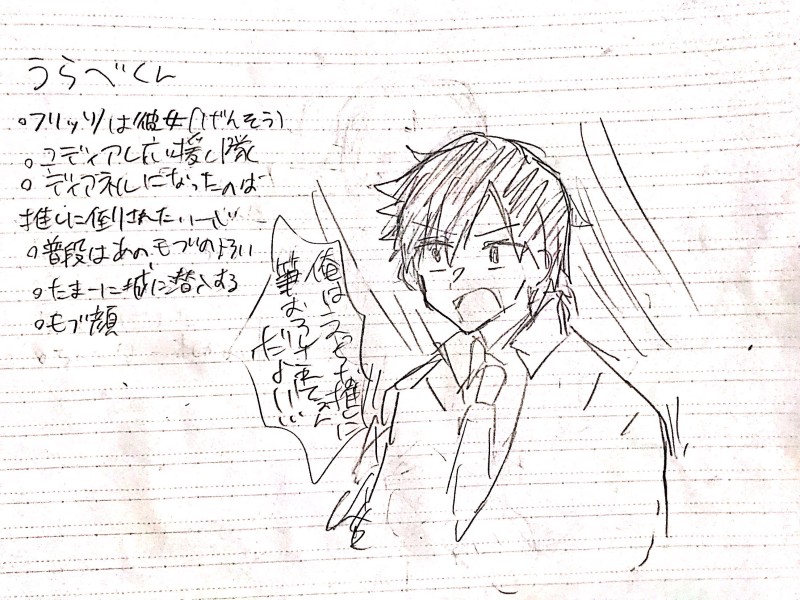 うらべくん
○フリッツは彼女(げんそう)
○ユディアした い援し隊
○ディアネルになったのは
推しに倒されたい一心
○普段はあのモブのよろい
○たまーに城に潜入する
○モブ顔
俺は推しに
筆おろ
だよ!!